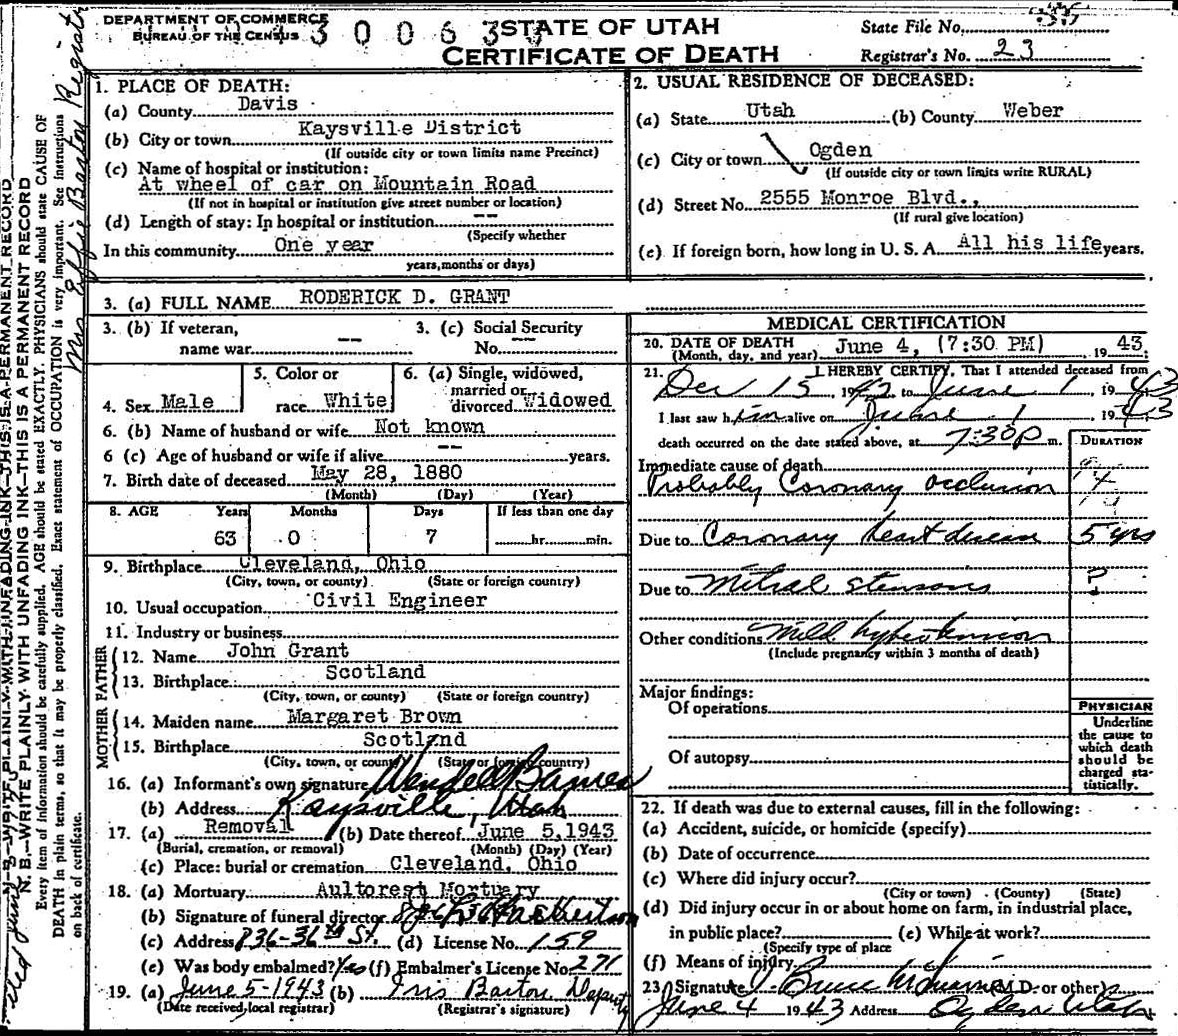 DEPARTMENT OF COMMERCE
BUREAU OF THE CENSUS
3 0 0 6 3
STATE OF UTAH
CERTIFICATE OF DEATH
State File No. 35
Registrar's No. 23
1. PLACE OF DEATH:
(a) County Davis
(b) City or town Kaysville District
(If outside city or town limits name Precinct)
(c) Name of hospital or institution:
At wheel of car on Mountain Road
(If not in hospital or institution give street number or location)
(d) Length of stay: In hospital or institution --
(Specify whether
In this community One year
years, months or days)
2. USUAL RESIDENCE OF DECEASED:
(a) State Utah (b) County Weber
(c) City or town Ogden
(If outside city or town limits write RURAL)
(d) Street No. 2555 Monroe Blvd.,
(If rural give location)
(e) If foreign born, how long in U. S. A. All his life years.
3. (a) FULL NAME RODERICK D. GRANT
3. (b) If veteran, name war --
3. (c) Social Security No. --
4. Sex Male
5. Color or race White
6. (a) Single, widowed, married or divorced Widowed
6. (b) Name of husband or wife Not known
6 (c) Age of husband or wife if alive -- years.
7. Birth date of deceased May 28, 1880
(Month) (Day) (Year)
8. AGE Years Months Days If less than one day
63 0 7 hr. min.
9. Birthplace Cleveland, Ohio
(City, town, or county) (State or foreign country)
10. Usual occupation Civil Engineer
11. Industry or business
FATHER
12. Name John Grant
13. Birthplace Scotland
(City, town, or county) (State or foreign country)
MOTHER
14. Maiden name Margaret Brown
15. Birthplace Scotland
(City, town, or county) (State or foreign country)
16. (a) Informant's own signature Wendell Barnes
(b) Address Kaysville, Utah
17. (a) Removal (b) Date thereof June 5, 1943
(Burial, cremation, or removal) (Month) (Day) (Year)
(c) Place: burial or cremation Cleveland, Ohio
18. (a) Mortuary Aultorest Mortuary
(b) Signature of funeral director
(c) Address 836-36th St. (d) License No. 159
(e) Was body embalmed? Yes (f) Embalmer's License No. 271
19. (a) June 5-1943 (b) Iris Barton Deputy
(Date received, local registrar) (Registrar's signature)
MEDICAL CERTIFICATION
20. DATE OF DEATH
(Month, day, and year) June 4, (7:30 PM) 1943
21. I HEREBY CERTIFY, That I attended deceased from
Dec 15 1942 to June 1 1943
I last saw him alive on June 1 1943
death occurred on the date stated above, at 7:30 p m.
DURATION
Immediate cause of death
Probably Coronary occlusion
Due to Coronary heart disease 5 yrs
Due to Mitral stenosis ?
Other conditions Mild hypertension
(Include pregnancy within 3 months of death)
Major findings:
Of operations
Of autopsy
PHYSICIAN
Underline
the cause to
which death
should be
charged sta-
tistically.
22. If death was due to external causes, fill in the following:
(a) Accident, suicide, or homicide (specify)
(b) Date of occurrence
(c) Where did injury occur?
(City or town) (County) (State)
(d) Did injury occur in or about home on farm, in industrial place,
in public place? (e) While at work?
(Specify type of place
(f) Means of injury
23. Signature (M.D. or other)
June 4 1943 Address Ogden Utah
N. B.—WRITE PLAINLY WITH UNFADING INK—THIS IS A PERMANENT RECORD
N. B.—WRITE PLAINLY WITH UNFADING INK—THIS IS A PERMANENT RECORD
Every item of information should be carefully supplied. AGE should be stated EXACTLY. PHYSICIANS should state CAUSE OF
DEATH in plain terms, so that it may be properly classified. Exact statement of OCCUPATION is very important. See Instructions
on back of certificate.
Mrs Effie Barton Registrar